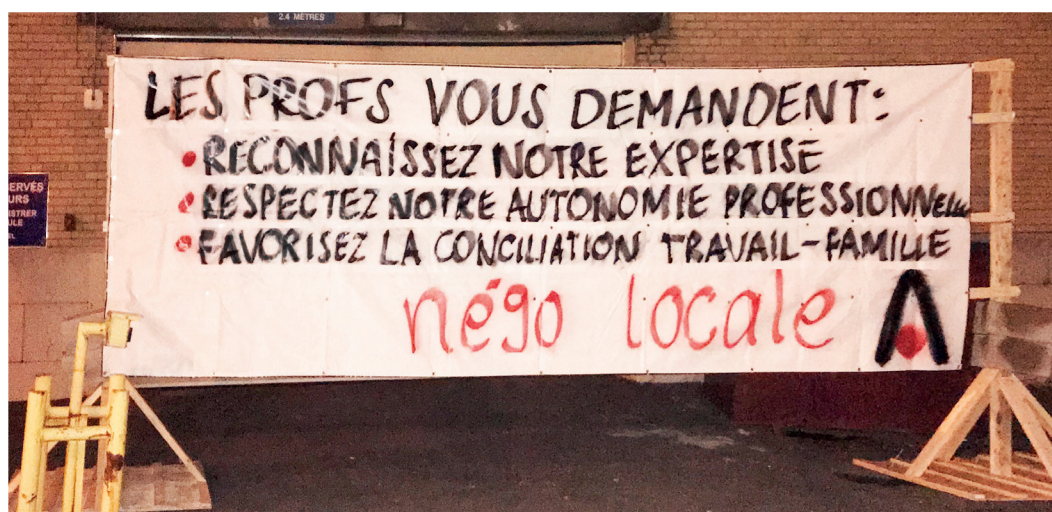 2.4 MÈTRES
LES PROFS VOUS DEMANDENT:
• RECONNAISSEZ NOTRE EXPERTISE
• RESPECTEZ NOTRE AUTONOMIE PROFESSIONNELLE
• FAVORISEZ LA CONCILIATION TRAVAIL-FAMILLE
négo locale